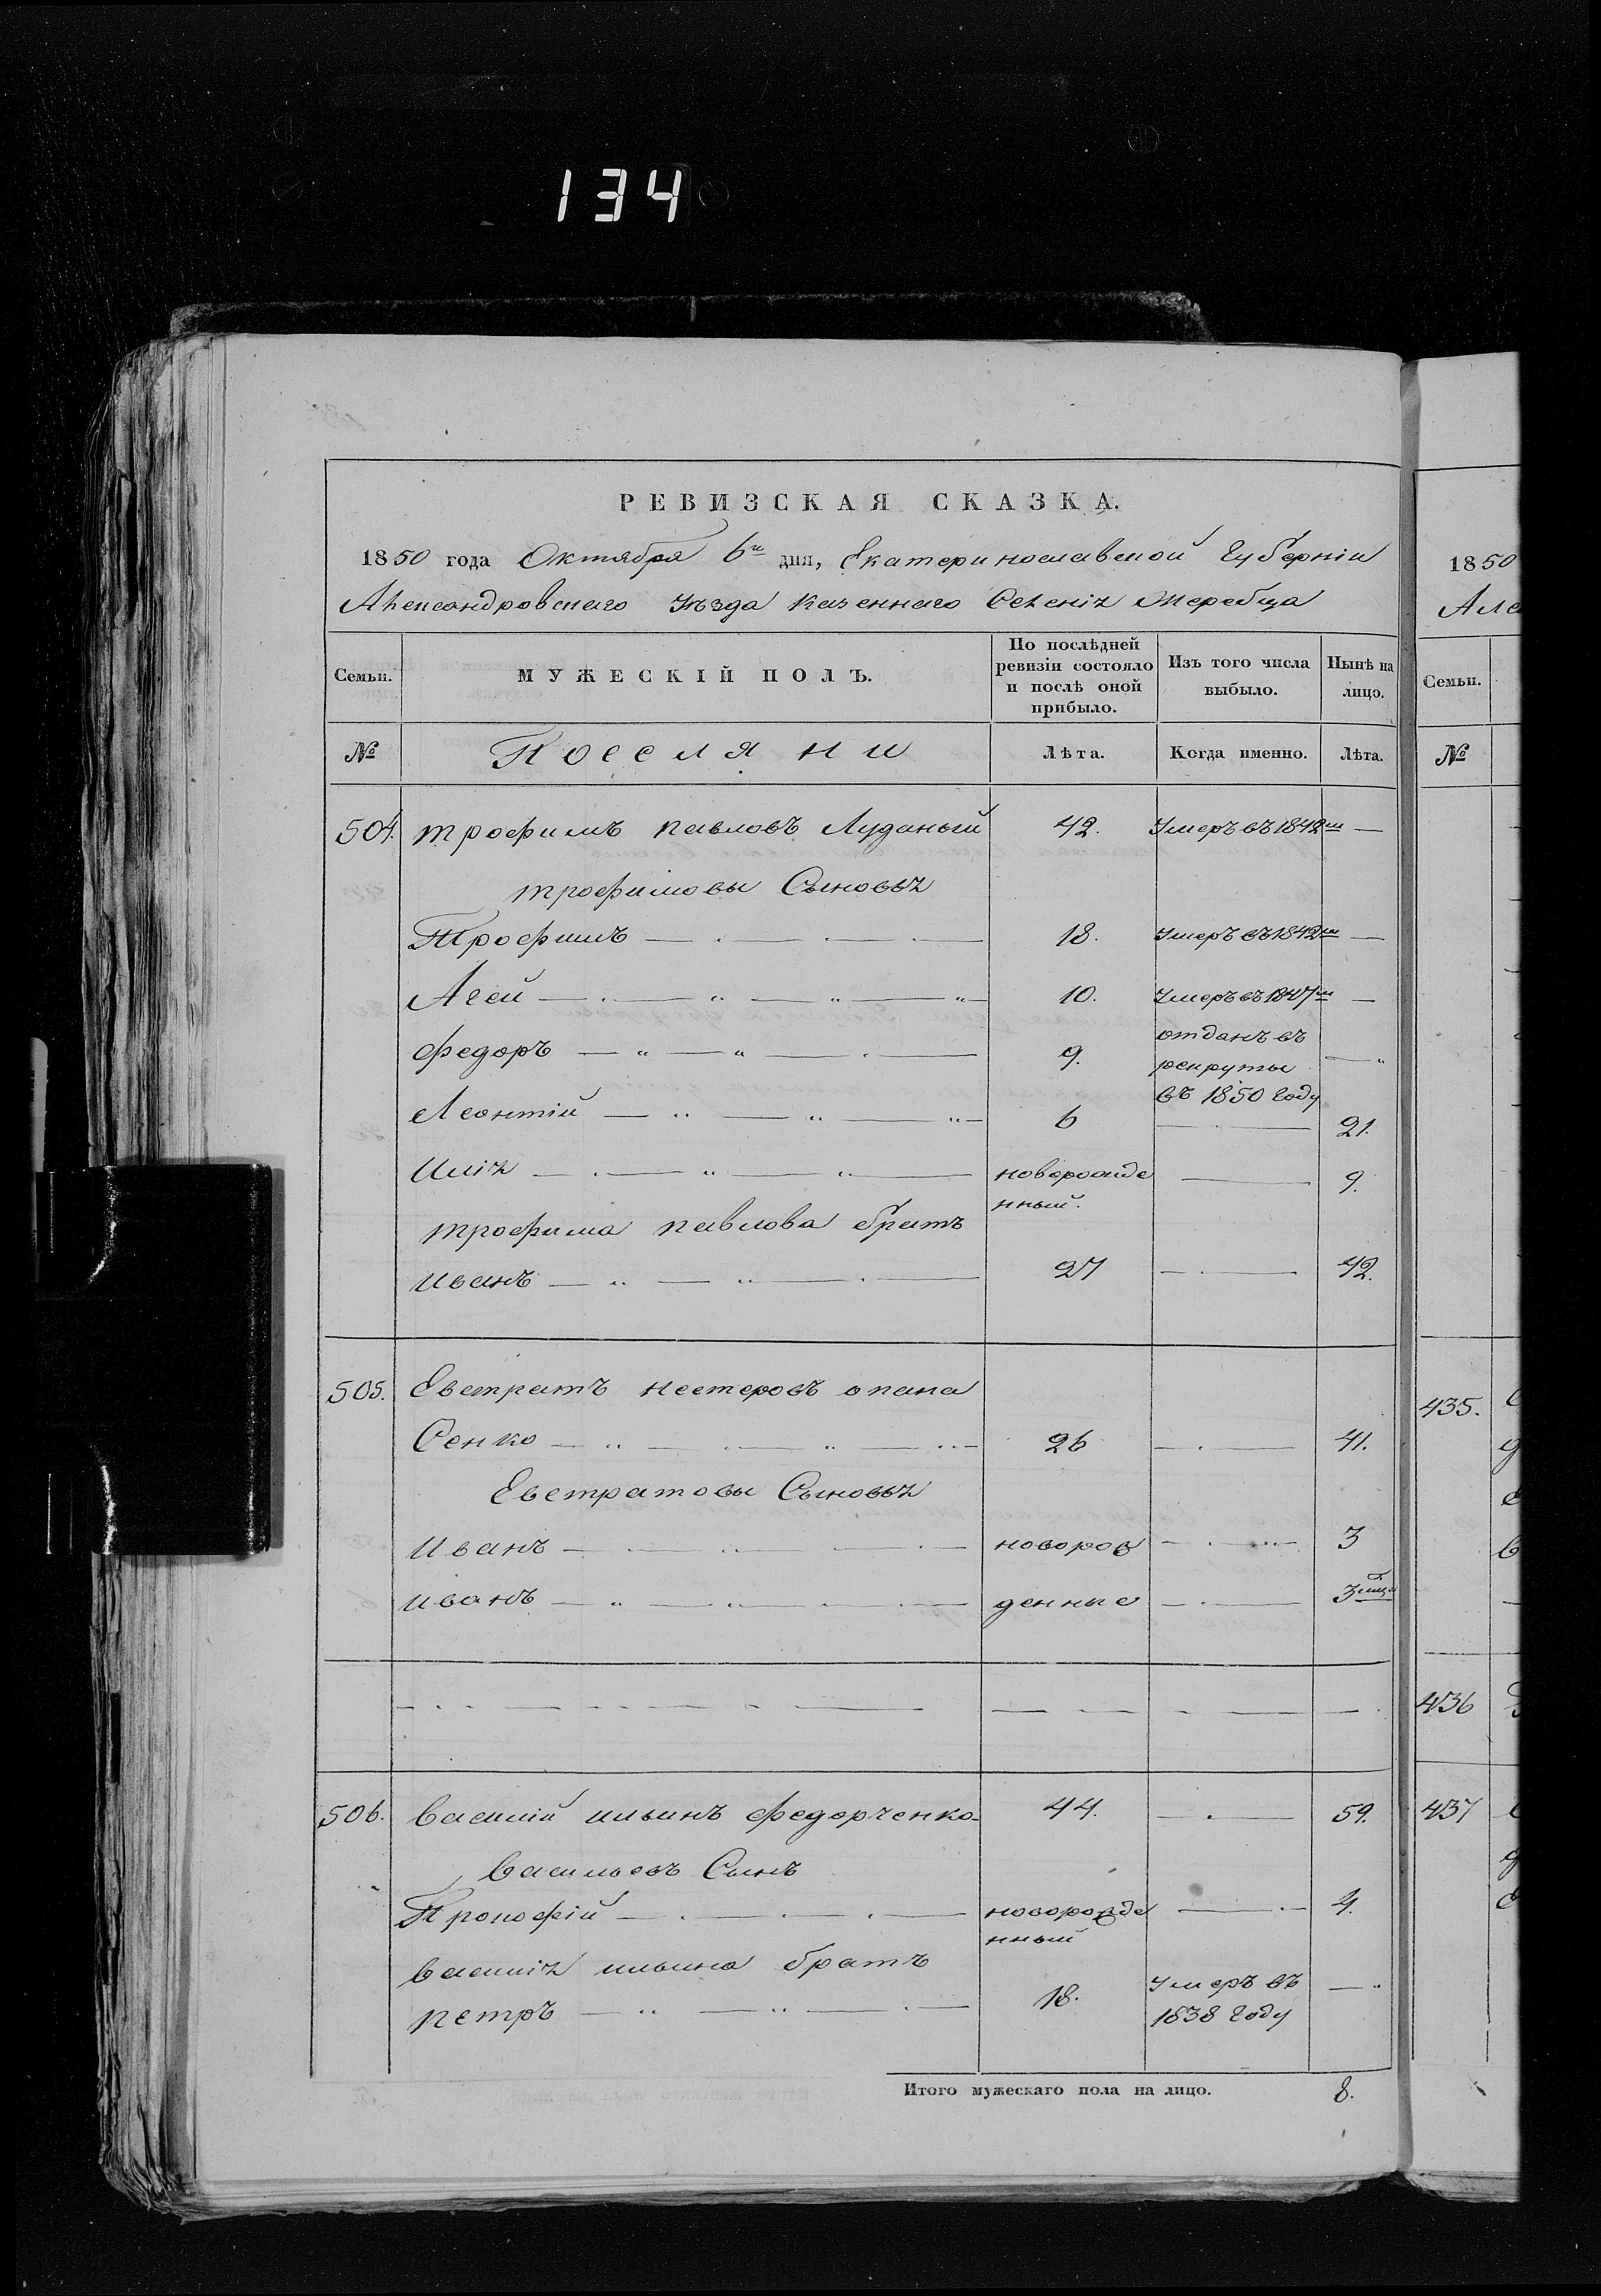 134
РЕВИЗСКАЯ СКАЗКА.
1850 года Октября 6го дня, Екатеринославской Губерніи
Александровскаго уѣзда казеннаго Селенія Жеребца
Семьи. МУЖЕСКІЙ ПОЛЪ. По послѣдней ревизіи состояло и послѣ оной прибыло. Изъ того числа выбыло. Нынѣ на лицо.
№ Поселяни Лѣта. Когда именно. Лѣта.
504. трофимъ павловъ Луданый 42. Умеръ въ 1842м —
трофимовы Сыновья
Трофимъ 18. Умеръ въ 1842м —
Агей 10. Умеръ въ 1847м —
федоръ 9. отданъ въ
рекруты
въ 1850 Году
Леонтій 6 — 21.
Илія новорожде — 9.
нный.
трофима павлова братъ
иванъ 27 — 42.
505. Евстратъ нестеровъ опана
Сенко 26 — 41.
Евстратовы Сыновья
Иванъ новорож — 3
иванъ денные — 3 мца
506. василій ильинъ федорченко 44. — 59.
васильевъ Сынъ
Прокофій новорожде — 4.
нный
василія ильина братъ
петръ 18. Умеръ въ
1838 Году
Итого мужескаго пола на лицо. 8.
1850
Але
Семьи.
№
435.
436
437